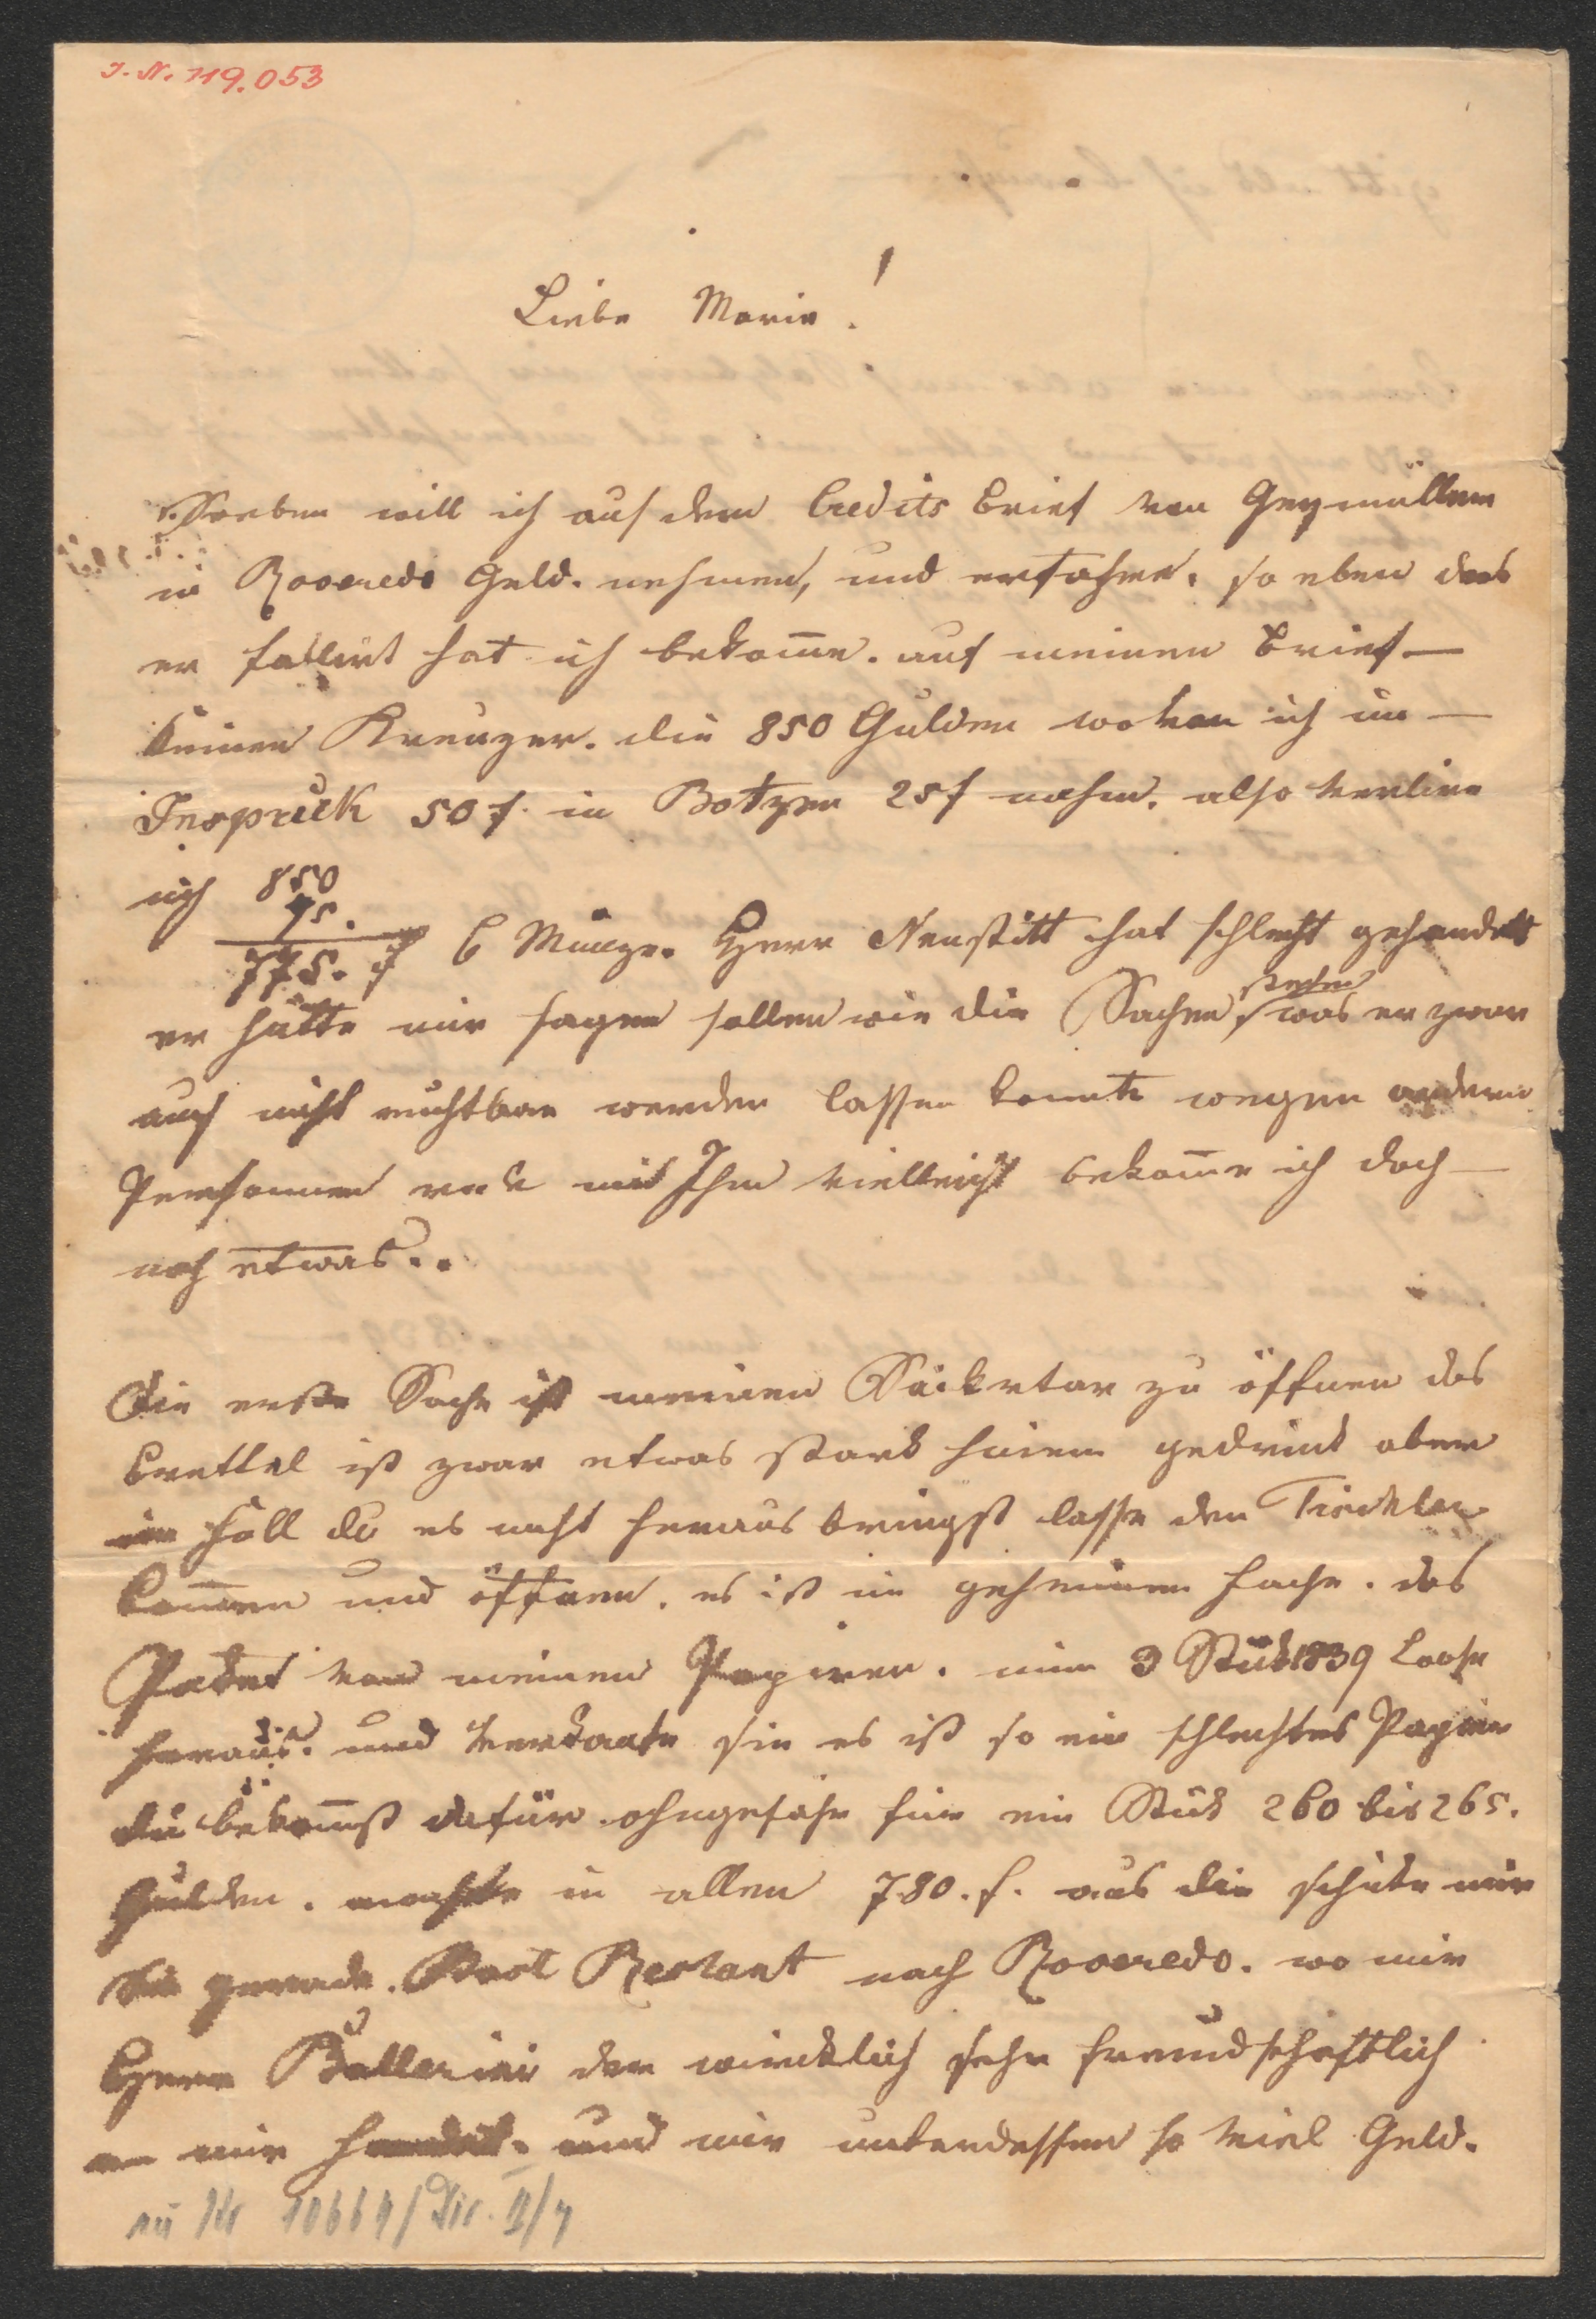 I. N. 119.053
Liebe Marie!
Soeben will ich auf den Credits Brief von Geymüller
in Roveredo Geld. nehmen, und erfahre. so eben das
er fallirt hat ich bekom̅e. auf meinen Brief—
keinen Kreuzer. die 850 Gulden wo von ich in—
Inspruck 50 f. in Botzen 25 f nahm. also verlire
ich 850
75.
775. f C Münze. Herr Neustitt hat schlecht gehandelt
er hätte mir sagen sollen wie die Sachen stehen was er zwar
auch nicht ruchtbar werden lassen konnte wegen andern
Personnen red mit Ihm vielleicht bekom̅e ich doch—
noch etwas..
Die erste Sache ist meinen Säckretar zu öffnen das
Brettel ist zwar etwas stark hinein gedruckt aber
im Fall du es nicht heraus bringst lasse den Tischler
kom̅en und öffnen. es ist im geheimen Fache. das
Packet von meinen Papiren. nim 3 Stück 1839 Loose
heraus. und verkaufe sie es ist so ein schlechtes Papier
du bekom̅st dafür. ohngefähr für ein Stück 260 bis 265.
Gulden. machte in allen 780. f. aus die schicke mir
die gerade. Post Restant nach Roveredo. wo mir
Herr Ballerini der wircklich sehr freundschaftlich
an mir handelt. und mir unterdessen so viel Geld.
zu Nr 10664/Dir. II/4